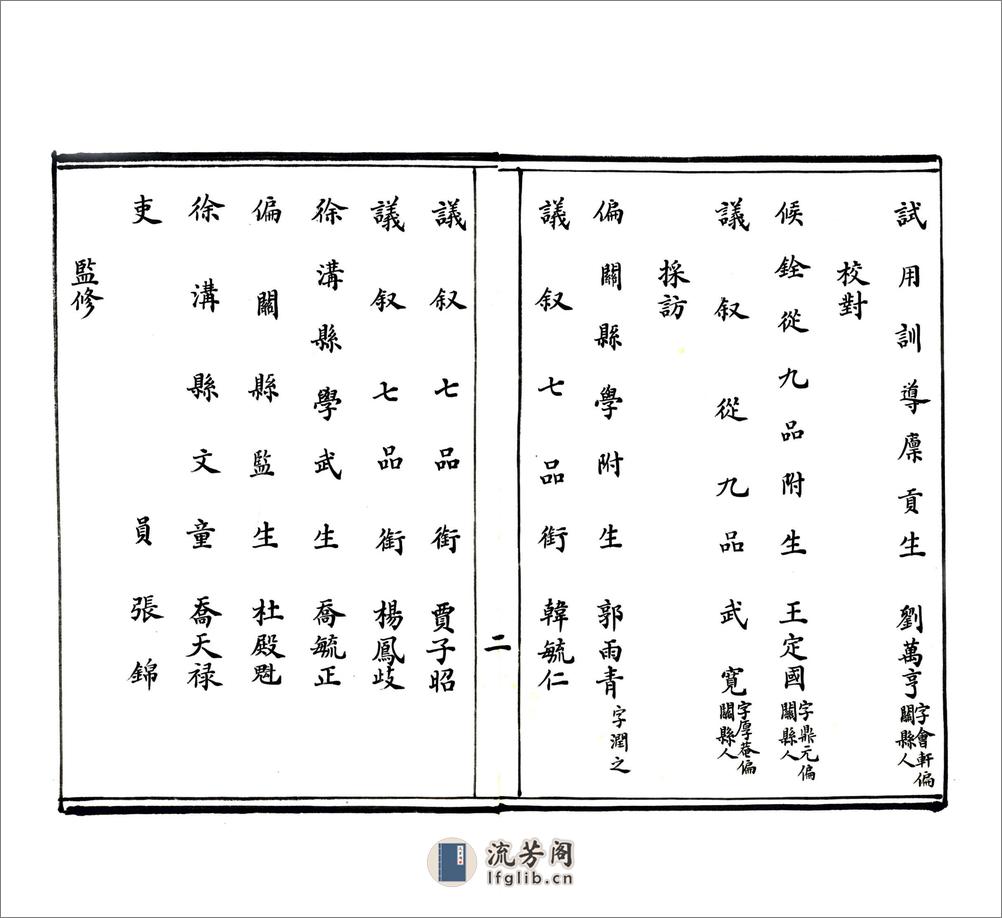 試用訓導廩貢生劉萬亨字會軒偏關縣人
校對
候銓從九品附生王定國字鼎元偏關縣人
議叙從九品武寬字厚菴偏關縣人
採訪
偏關縣學附生郭雨青字潤之
議叙七品銜韓毓仁
二
議叙七品銜賈子昭
議叙七品銜楊鳳歧
徐溝縣學武生喬毓正
偏關縣監生杜殿魁
徐溝縣文童喬天禄
吏員張錦
監修
流芳阁
lfglib.cn